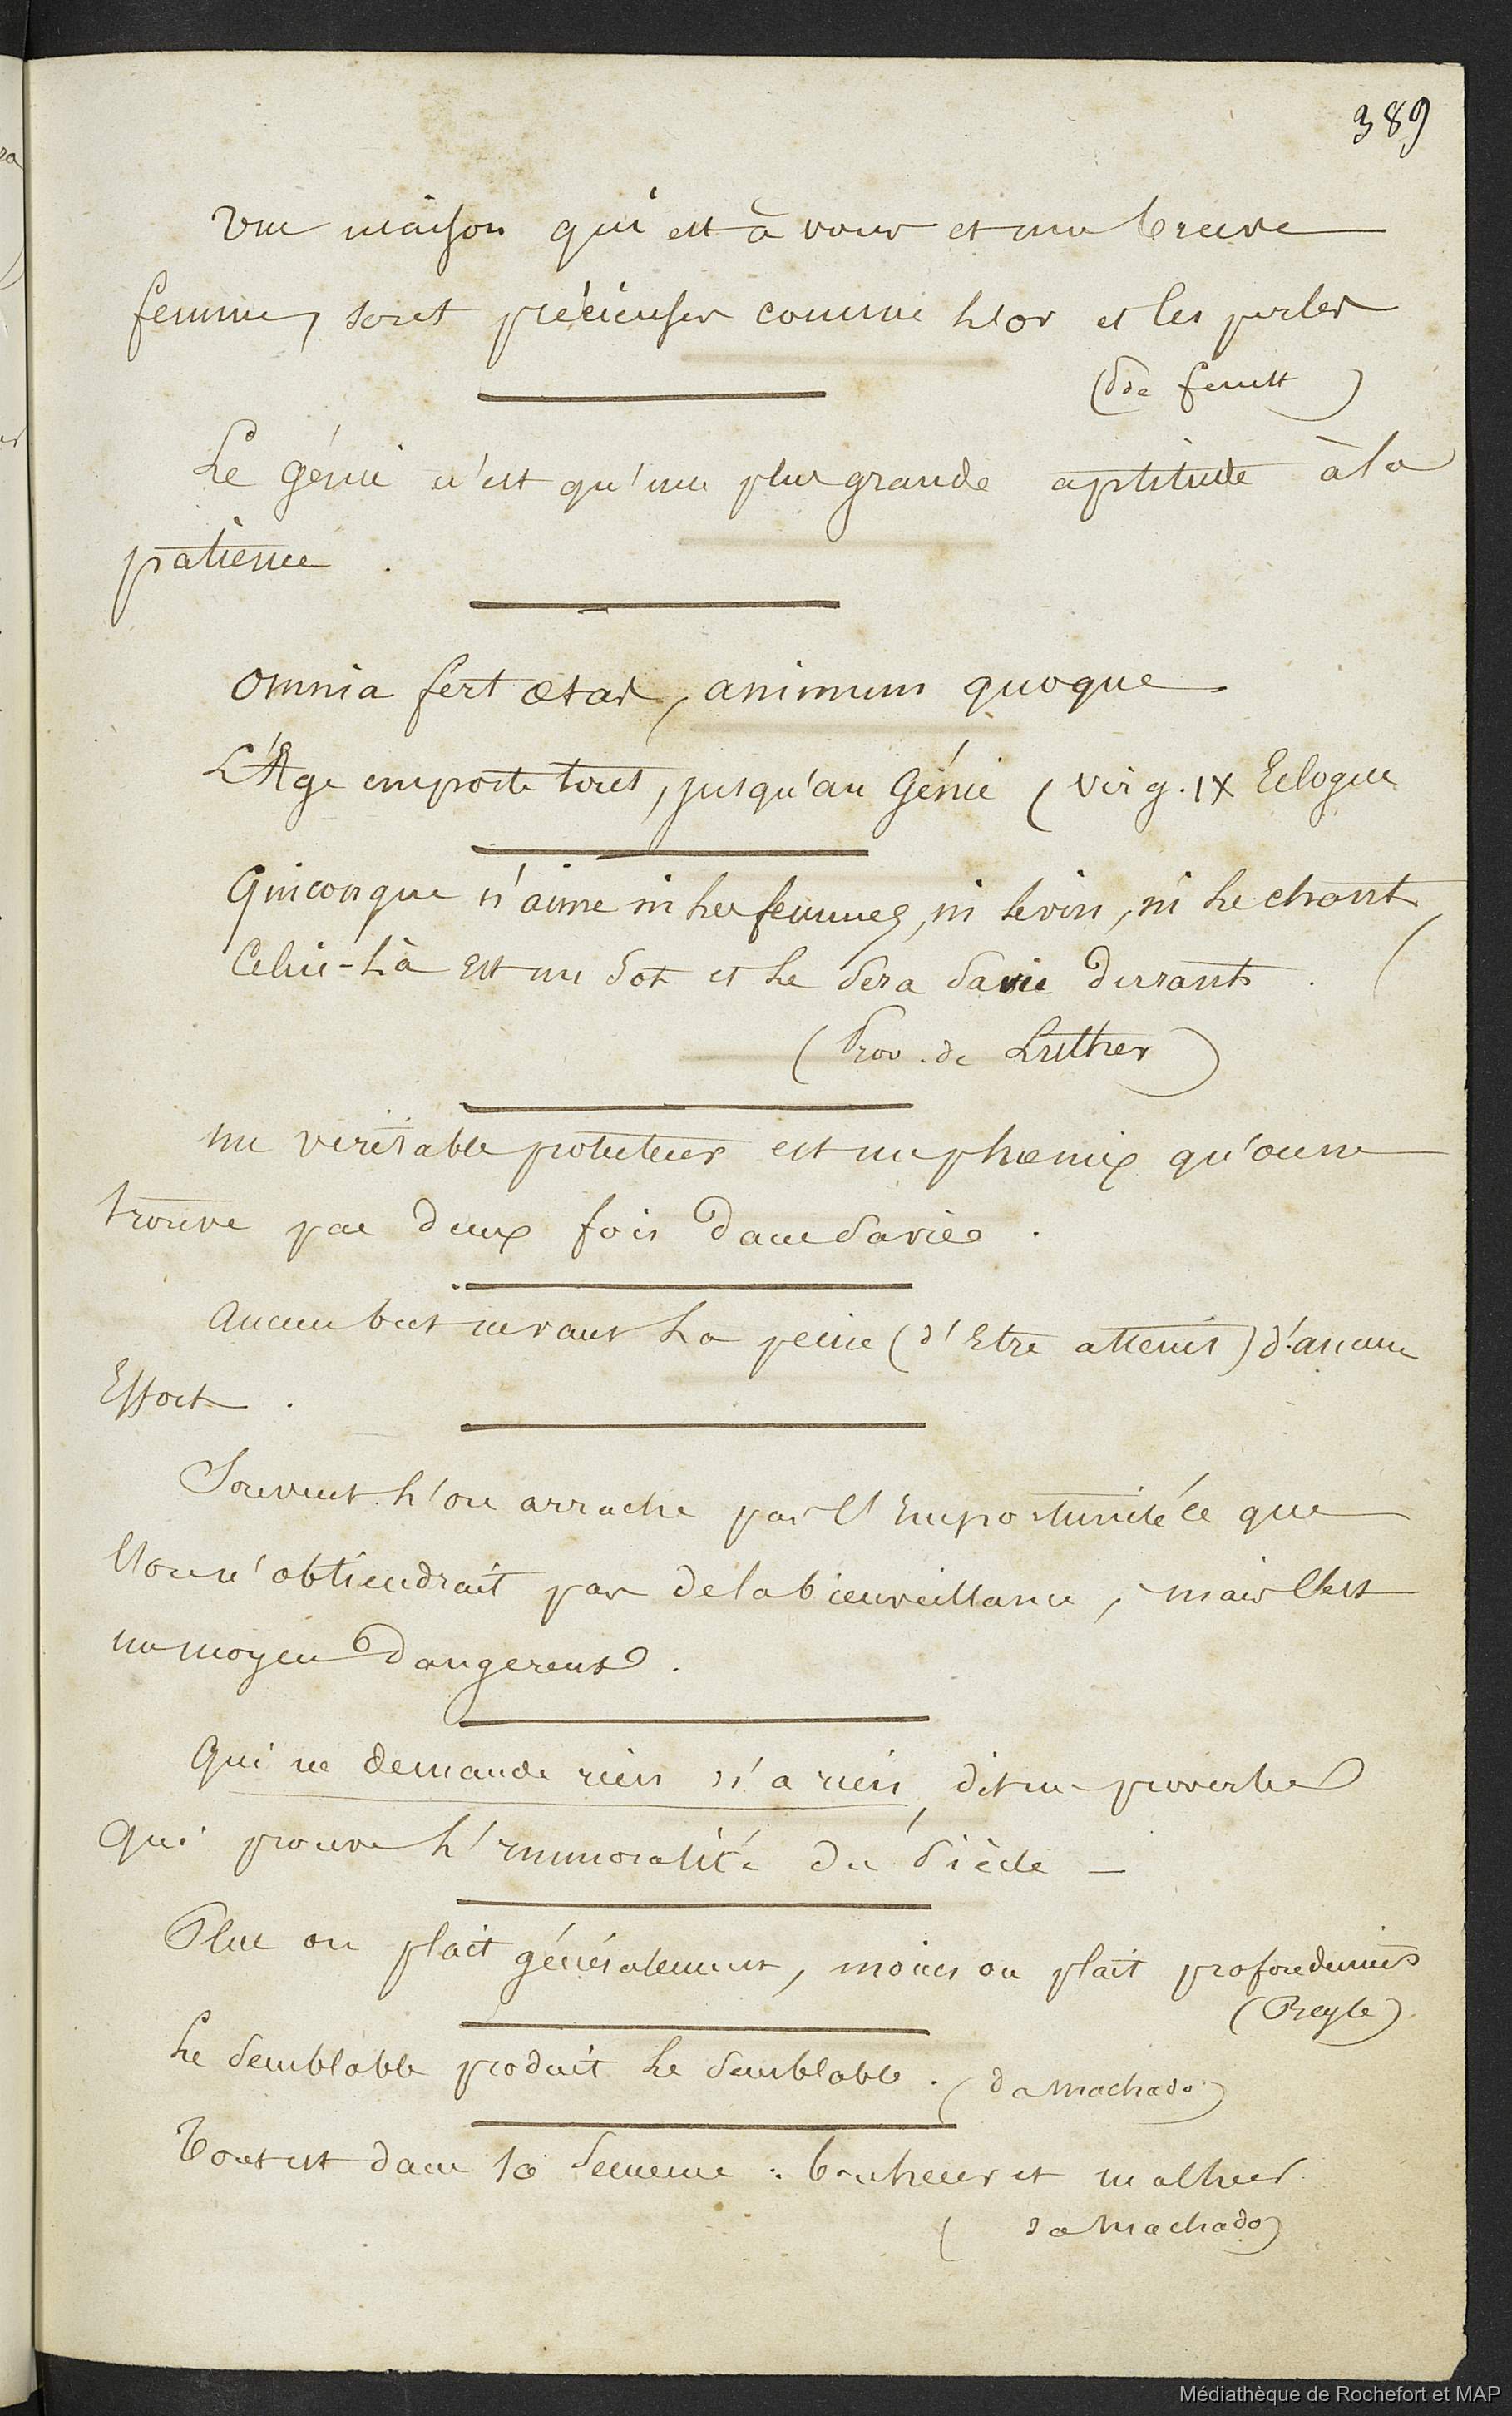 389
Une maison qui est à vous et une brave
femme, sont précieuses comme l'or et les perles
(de faust)
Le génie n'est qu'une plus grande aptitude à la
patience.
Omnia fert ætas, animum quoque
L'Age emporte tout, jusqu'au Génie (Virg. IX Eclogue
Quiconque n'aime ni les femmes, ni le vin, ni le chant
Celui-là Est un Sot et le Sera Sa vie Durant. (
(Prov. de Luther)
un véritable protecteur est un phœnix qu'on ne
trouve pas deux fois dans Sa vie.
Aucun but ne vaut la peine (d'Etre atteint) d'aucun
Effort.
Souvent l'on arrache par l'Importunité ce que
l'on n'obtiendrait pas de la bienveillance, mais c'est
un moyen dangereux.
Qui ne demande rien n'a rien, dit un proverbe
qui prouve l'immoralité du Siècle —
Plus on plait généralement, moins on plait profondément
(Beyle)
Le Semblable produit le Semblable. (da Machado)
Tout est dans la Semence : bonheur et malheur
(da Machado)
Médiathèque de Rochefort et MAP